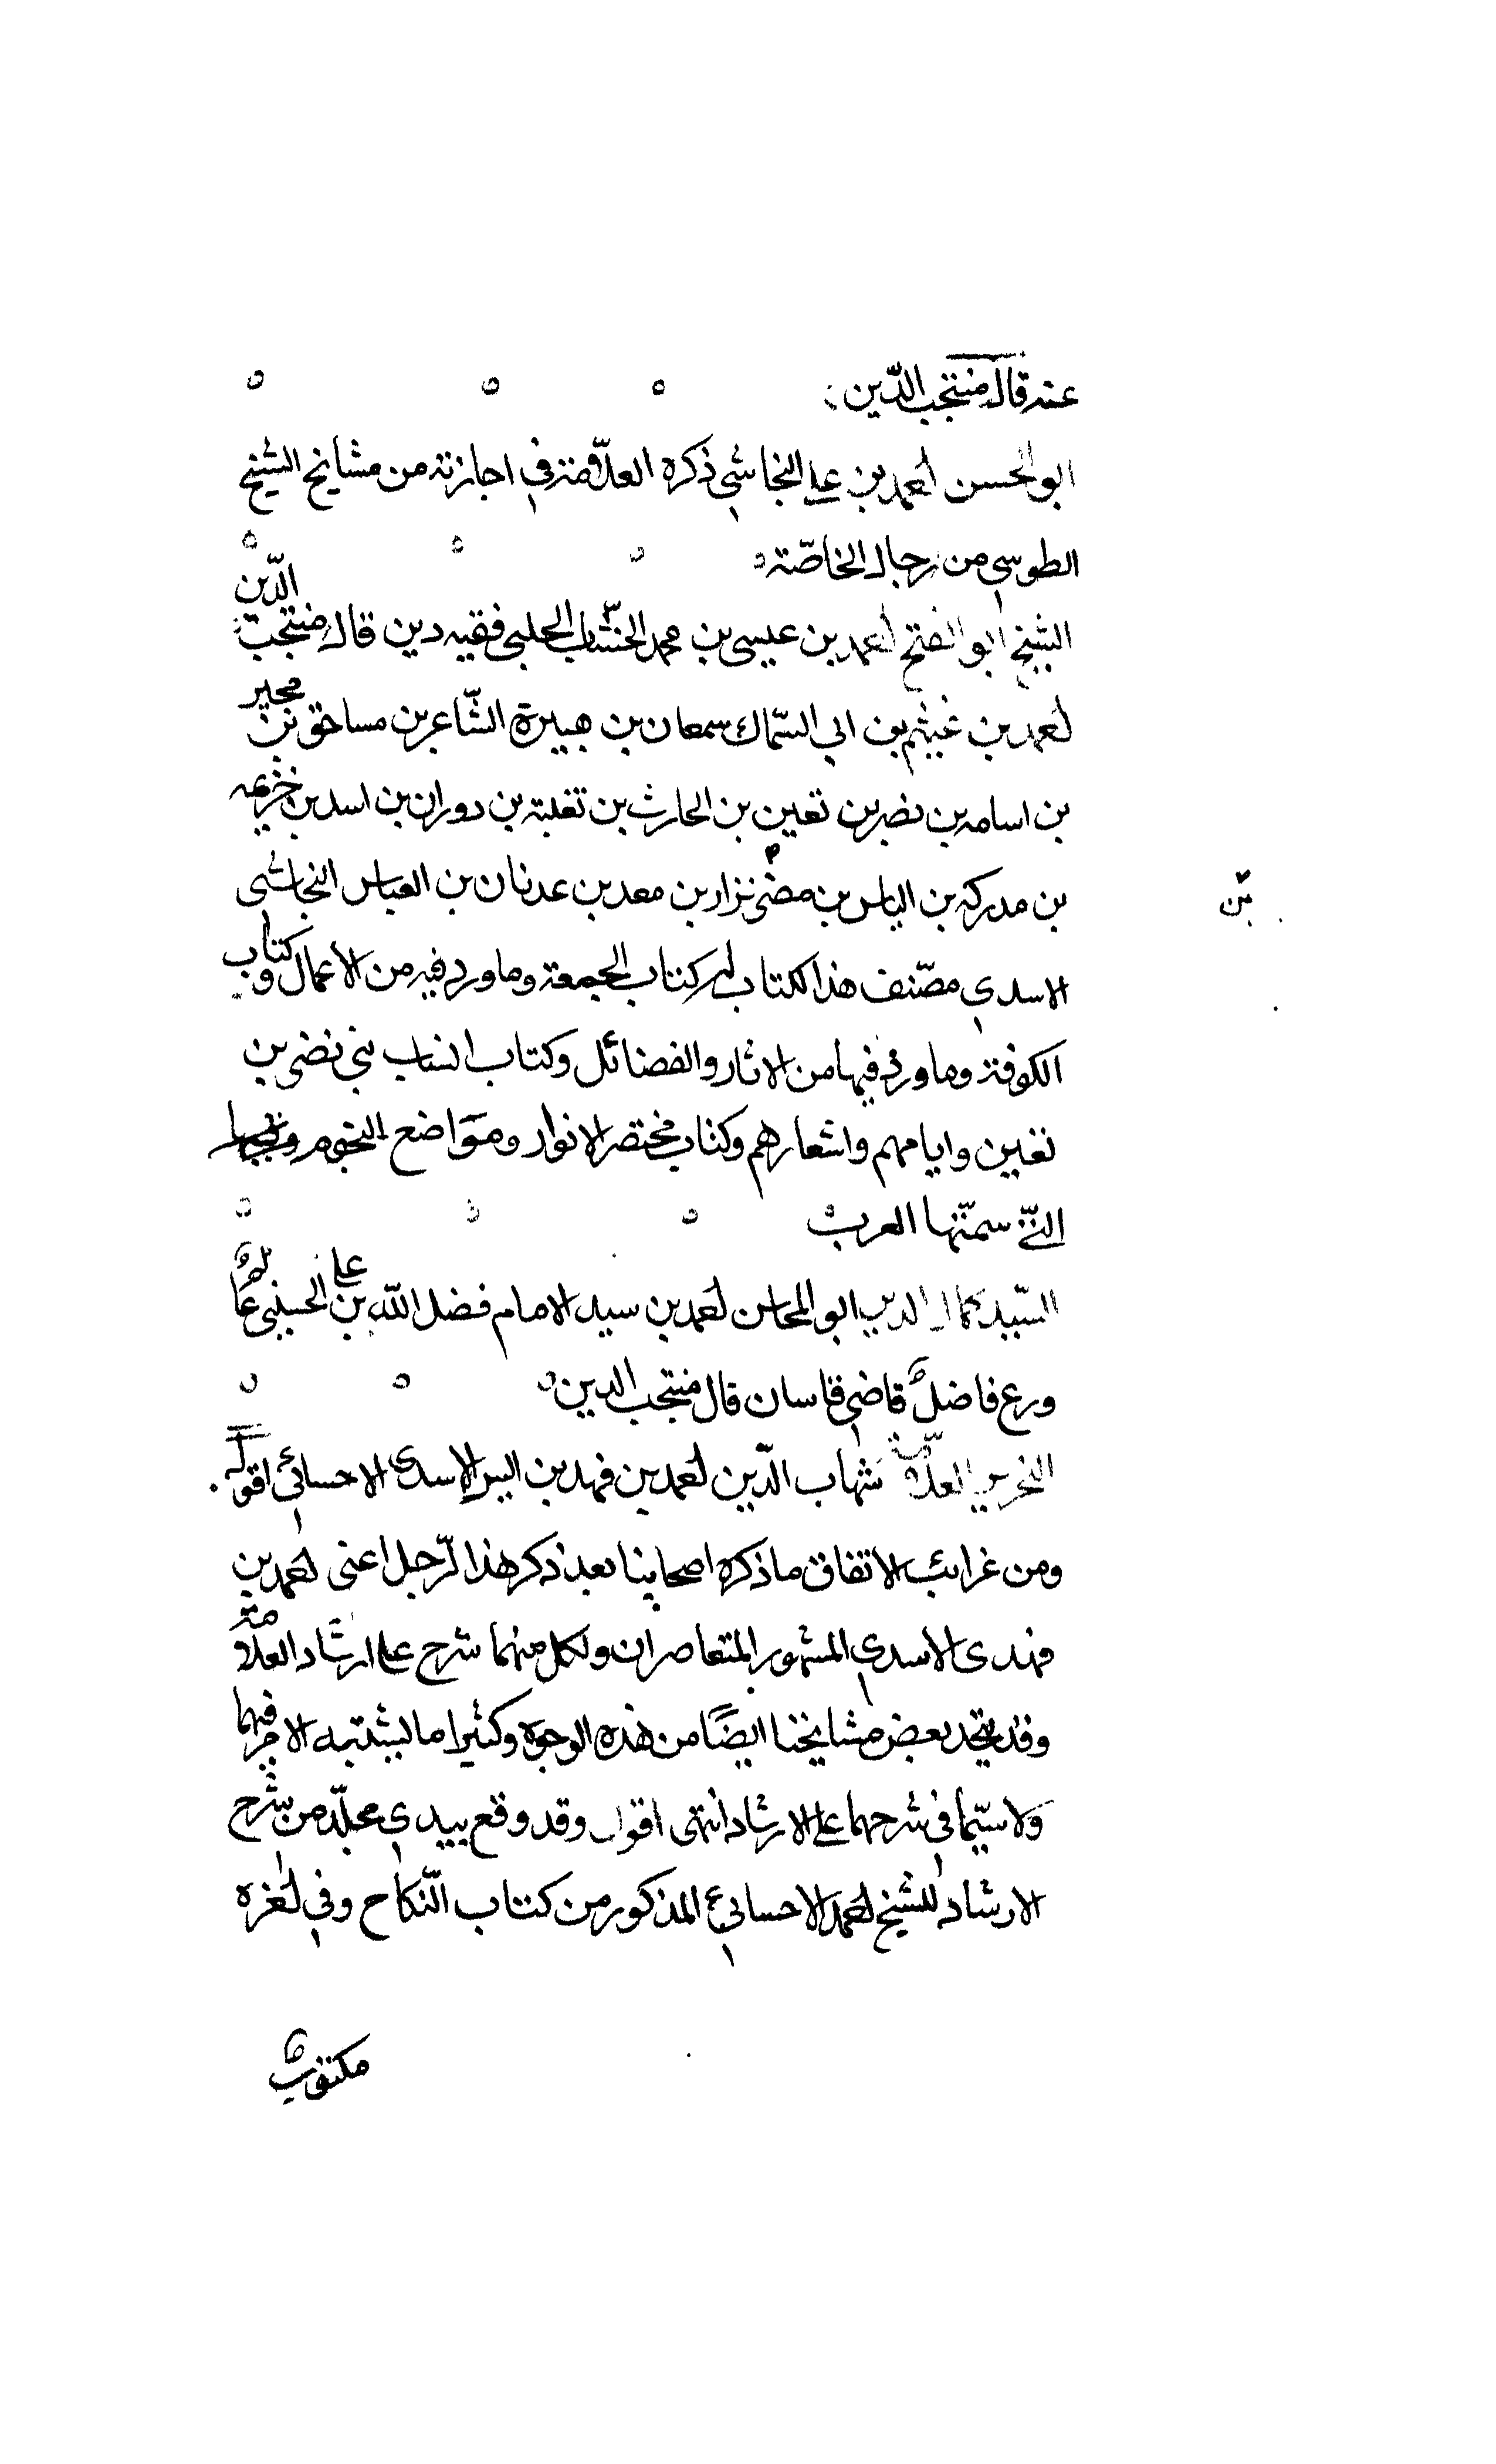 عنه قاله منتجب الدّين
ابو الحسن احمد بن على النجاشي ذكره العلّامة في اجازته من مشايخ الشيخ
الطوسي من رجال الخاصّة
الشيخ ابو الفتح احمد بن عيسى بن محمد الخشّاب الحلبي فقيه دين قاله منتجب الدّين
احمد بن غيثم بن ابي السّمال سمعان بن هبيرة الشّاعر بن مساحق بن مجير
بن اسامه بن نصر بن تعين بن الحارث بن تغلبة بن دوران بن اسد بن خزيمه
بن مدركة بن الياس بن مضر نزار بن معد بن عدنان بن العباس النجاشي
بن
الاسدي مصنّف هذا الكتاب له كتاب الجمعة وما ورد فيه من الأعمال وكتاب
الكوفة وما ورد فيها من الاثار والفضائل وكتاب انساب بني نضر بن
تغين وايامهم واشعارهم وكتاب مختصر الانوار ومواضع النجوم
التي سمتّها العرب
السّيد كمال الدين ابو المحاسن احمد بن سيد الامام فضل الله بن على الحسيني عالم
ورع فاضل قاضي قاسان قال منتجب الدين
النحرير العلّامة شهاب الدّين احمد بن فهد بن ادريس الاسدى الاحسائي اقول
ومن غرائب الاتفاق ما ذكره اصحابنا بعد ذكر هذا الرّجل اعنى احمد بن
فهدى الاسدي المشهور المتعاصران ولكل منهما شرح على ارشاد العلّامة
وقد يتحد بعض مشايخنا ايضًا من هذه الوجوه وكثيرا ما يشتبه الامر فيهما
ولا سيّما في شرحهما على الارشاد انتهى اقول وقد وقع بيدي مجلّد من شرح
الارشاد للشيخ احمد الاحسائي المذكور من كتاب النّكاح وفي اخره
مكتوب